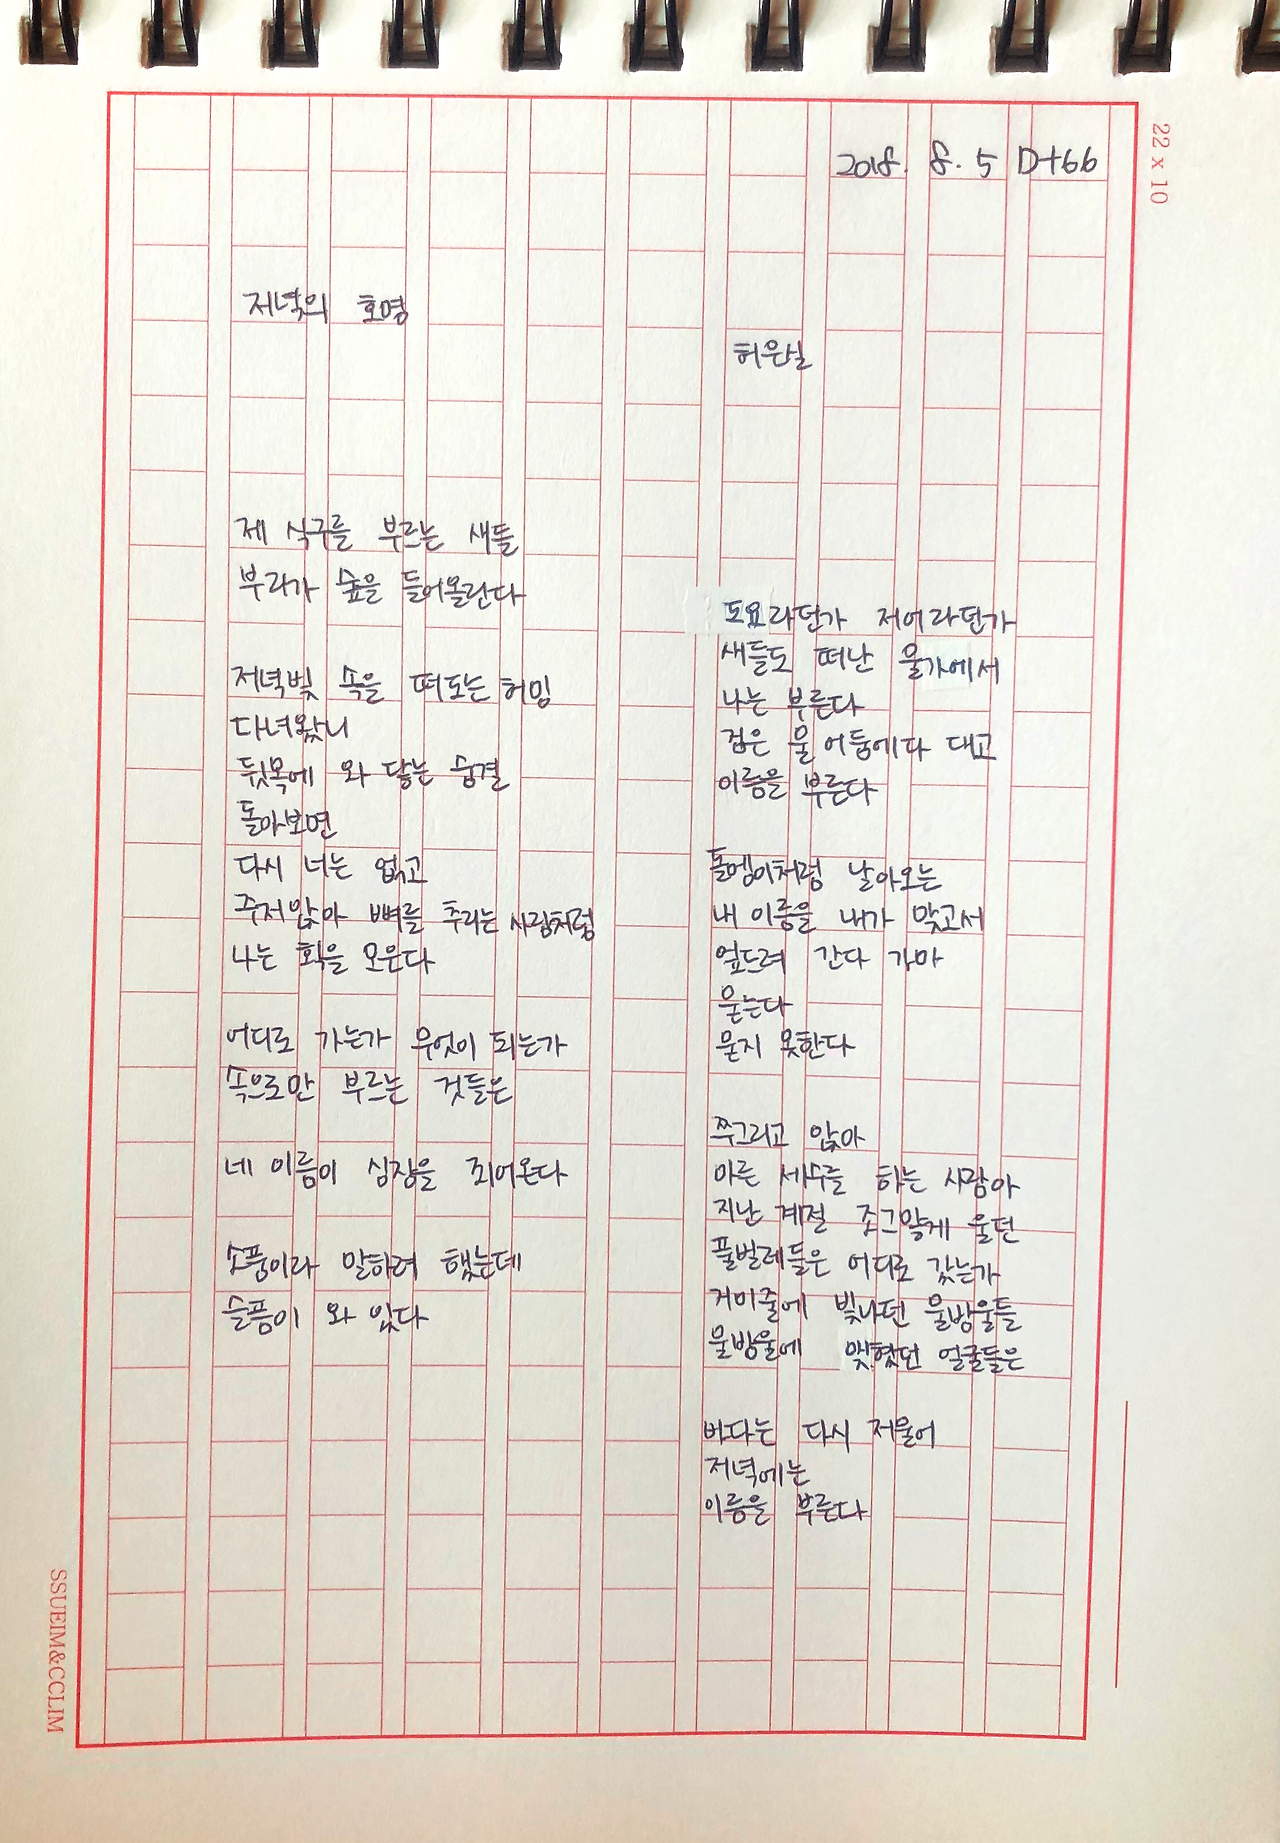 2018. 8. 5 D+66
22 x 10
저녁의 호명
허은실
제 식구를 부르는 새들
부리가 숲을 들어올린다
저녁빛 속을 떠도는 허밍
다녀왔니
뒷목에 와 닿는 숨결
돌아보면
다시 너는 없고
주저앉아 뼈를 추리는 사람처럼
나는 획을 모은다
어디로 가는가 무엇이 되는가
속으로만 부르는 것들은
네 이름이 심장을 죄어온다
소풍이라 말하려 했는데
슬픔이 와 있다
도요라던가 저어라던가
새들도 떠난 물가에서
나는 부른다
검은 물 어둠에다 대고
이름을 부른다
돌멩이처럼 날아오는
내 이름을 내가 맞고서
엎드려 간다 가마
묻는다
묻지 못한다
쭈그리고 앉아
마른 세수를 하는 사람아
지난 계절 조그맣게 울던
풀벌레들은 어디로 갔는가
거미줄에 빛나던 물방울들
물방울에 맺혔던 얼굴들은
바다는 다시 저물어
저녁에는
이름을 부른다
SSUEIM&CCLIM